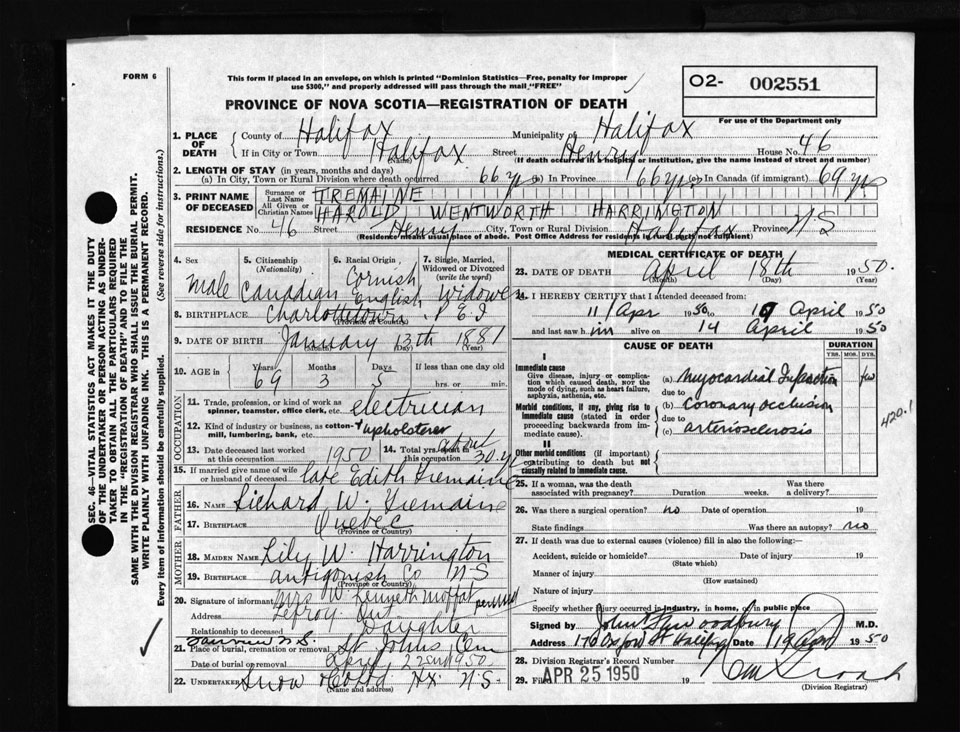 FORM 6
This form if placed in an envelope, on which is printed "Dominion Statistics—Free, penalty for improper
use $300," and properly addressed will pass through the mail "FREE"
O2- 002551
PROVINCE OF NOVA SCOTIA—REGISTRATION OF DEATH
For use of the Department only
1. PLACE OF DEATH
County of Halifax Municipality of Halifax
If in City or Town Halifax Street Henry House No. 46
(Name) (If death occurred in hospital or institution, give the name instead of street and number)
2. LENGTH OF STAY (in years, months and days)
(a) In City, Town or Rural Division where death occurred 66 yrs (b) In Province 66 yrs (c) In Canada (if immigrant) 69 yrs
3. PRINT NAME OF DECEASED
Surname or Last Name TREMAINE
All Given or Christian Names HAROLD WENTWORTH HARRINGTON
RESIDENCE No. 46 Street Henry City, Town or Rural Division Halifax Province N S
(Residence means usual place of abode. Post Office Address for residents in rural parts not sufficient)
4. Sex Male
5. Citizenship (Nationality) Canadian
6. Racial Origin, Cornish English
7. Single, Married, Widowed or Divorced (write the word) Widower
8. BIRTHPLACE Charlottetown, P E I
(Province or Country)
9. DATE OF BIRTH January 13th 1881
(Month) (Day) (Year)
10. AGE in Years 69 Months 3 Days 5 If less than one day old
hrs. or min.
OCCUPATION
11. Trade, profession, or kind of work as
spinner, teamster, office clerk, etc. electrician
12. Kind of industry or business, as cotton-
mill, lumbering, bank, etc. + upholsterer
13. Date deceased last worked
at this occupation 1950
14. Total yrs. spent in
this occupation about 30 yr
15. If married give name of wife
or husband of deceased late Edith Tremaine
FATHER
16. NAME Richard W. Tremaine
17. BIRTHPLACE Quebec
(Province or Country)
MOTHER
18. MAIDEN NAME Lily W. Harrington
19. BIRTHPLACE Antigonish Co N-S
(Province or Country)
20. Signature of informant Mrs W. Kenneth Moffat
Address Lefroy Ont
Relationship to deceased Daughter
Fairview N.S.
21. Place of burial, cremation or removal St Johns Cem
Date of burial or removal April 22nd 1950
22. UNDERTAKER Snow & Co Ltd Hx N.S.
(Name and address)
MEDICAL CERTIFICATE OF DEATH
23. DATE OF DEATH April 18th 1950.
(Month) (Day) (Year)
24. I HEREBY CERTIFY that I attended deceased from:
11 Apr 1950 to 19 April 1950
and last saw him alive on 14 April 1950
CAUSE OF DEATH
DURATION
YRS. MOS. DYS.
I
Immediate cause
Give disease, injury or compli-
cation which caused death, NOT the
mode of dying, such as heart failure,
asphyxia, asthenia, etc.
(a) Myocardial Infarction few
due to
Morbid conditions, if any, giving rise to
immediate cause (stated in order
proceeding backwards from im-
mediate cause).
(b) coronary occlusion
due to
(c) arteriosclerosis
420.1
II
Other morbid conditions (if important)
contributing to death but not
causally related to immediate cause.
25. If a woman, was the death
associated with pregnancy? Duration weeks. Was there
a delivery?
26. Was there a surgical operation? no Date of operation 19
State findings Was there an autopsy? no
27. If death was due to external causes (violence) fill in also the following:—
Accident, suicide or homicide? Date of injury 19
(State which)
Manner of injury
(How sustained)
Nature of injury
Specify whether injury occurred in industry, in home, or in public place
Signed by Woodbury M.D.
Address 170 Oxford St Halifax Date 19 Apr 1950
28. Division Registrar's Record Number
29. Filed APR 25 1950 19
(Division Registrar)
SEC. 46—VITAL STATISTICS ACT MAKES IT THE DUTY
OF THE UNDERTAKER OR PERSON ACTING AS UNDER-
TAKER TO OBTAIN ALL THE PARTICULARS REQUIRED
IN THE "REGISTRATION OF DEATH" AND TO FILE THE
SAME WITH THE DIVISION REGISTRAR WHO SHALL ISSUE THE BURIAL PERMIT.
WRITE PLAINLY WITH UNFADING INK. THIS IS A PERMANENT RECORD.
Every item of information should be carefully supplied. (See reverse side for instructions.)